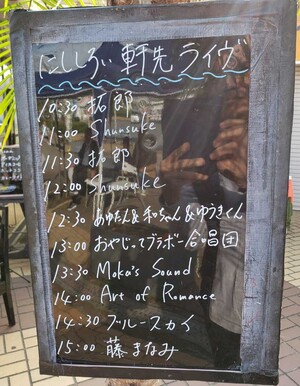 にししろい軒先ライヴ
10:30 拓郎
11:00 Shunsuke
11:30 拓郎
12:00 Shunsuke
12:30 あゆたん&和ちゃん&ゆうきくん
13:00 おやじってブラボー合唱団
13:30 Moko's Sound
14:00 Art of Romance
14:30 ブルースカイ
15:00 藤まなみ